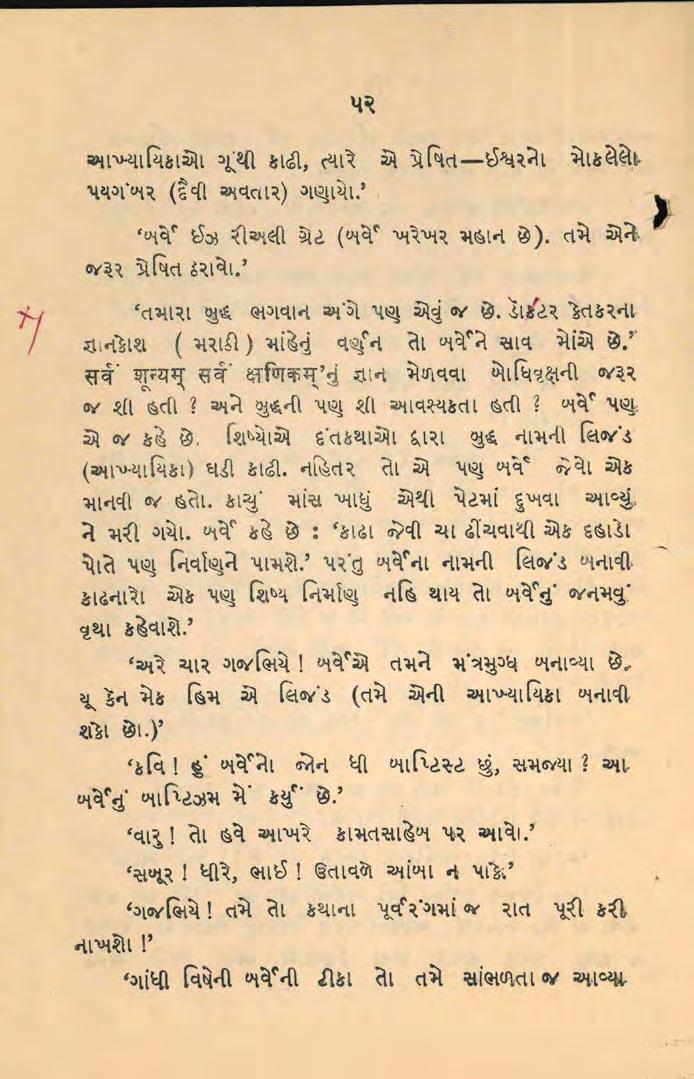 ૫૨
આખ્યાયિકાઓ ગૂંથી કાઢી, ત્યારે એ પ્રેષિત—ઈશ્વરનો મોકલેલો
પયગંબર (દૈવી અવતાર) ગણાયો.’
‘બર્વે ઈઝ રીઅલી ગ્રેટ (બર્વે ખરેખર મહાન છે). તમે એને
જરૂર પ્રેષિત ઠરાવો.’
‘તમારા બુદ્ધ ભગવાન અંગે પણ એવું જ છે. ડૉક્ટર કેતકરના
જ્ઞાનકોશ ( મરાઠી ) માંહેનું વર્ણન તો બર્વેને સાવ મોંએ છે.’
सर्वं शून्यम् सर्वं क्षणिकम्’નું જ્ઞાન મેળવવા બોધિવૃક્ષની જરૂર
જ શી હતી ? અને બુદ્ધની પણ શી આવશ્યકતા હતી ? બર્વે પણ
એ જ કહે છે. શિષ્યોએ દંતકથાઓ દ્વારા બુદ્ધ નામની લિજંડ
(આખ્યાયિકા) ઘડી કાઢી. નહિતર તો એ પણ બર્વે જેવો એક
માનવી જ હતો. કાચું માંસ ખાધું એથી પેટમાં દુખવા આવ્યું
ને મરી ગયો. બર્વે કહે છે : ‘કાઢા જેવી ચા ઢીંચવાથી એક દહાડો
પોતે પણ નિર્વાણને પામશે.’ પરંતુ બર્વેના નામની લિજંડ બનાવી
કાઢનારો એક પણ શિષ્ય નિર્માણ નહિ થાય તો બર્વેનું જનમવું
વૃથા કહેવાશે.’
‘અરે ચાર ગજભિયે ! બર્વેએ તમને મંત્રમુગ્ધ બનાવ્યા છે.
યૂ કૅન મેક હિમ એ લિજંડ (તમે એની આખ્યાયિકા બનાવી
શકો છો.)’
‘કવિ ! હું બર્વેનો જોન ધી બાપ્ટિસ્ટ છું, સમજ્યા ? આ
બર્વેનું બાપ્ટિઝમ મેં કર્યું છે.’
‘વારુ ! તો હવે આખરે કામતસાહેબ પર આવો.’
‘સબૂર ! ધીરે, ભાઈ ! ઉતાવળે આંબા ન પાકે.’
‘ગજભિયે ! તમે તો કથાના પૂર્વરંગમાં જ રાત પૂરી કરી
નાખશો !’
‘ગાંધી વિષેની બર્વેની ટીકા તો તમે સાંભળતા જ આવ્યા